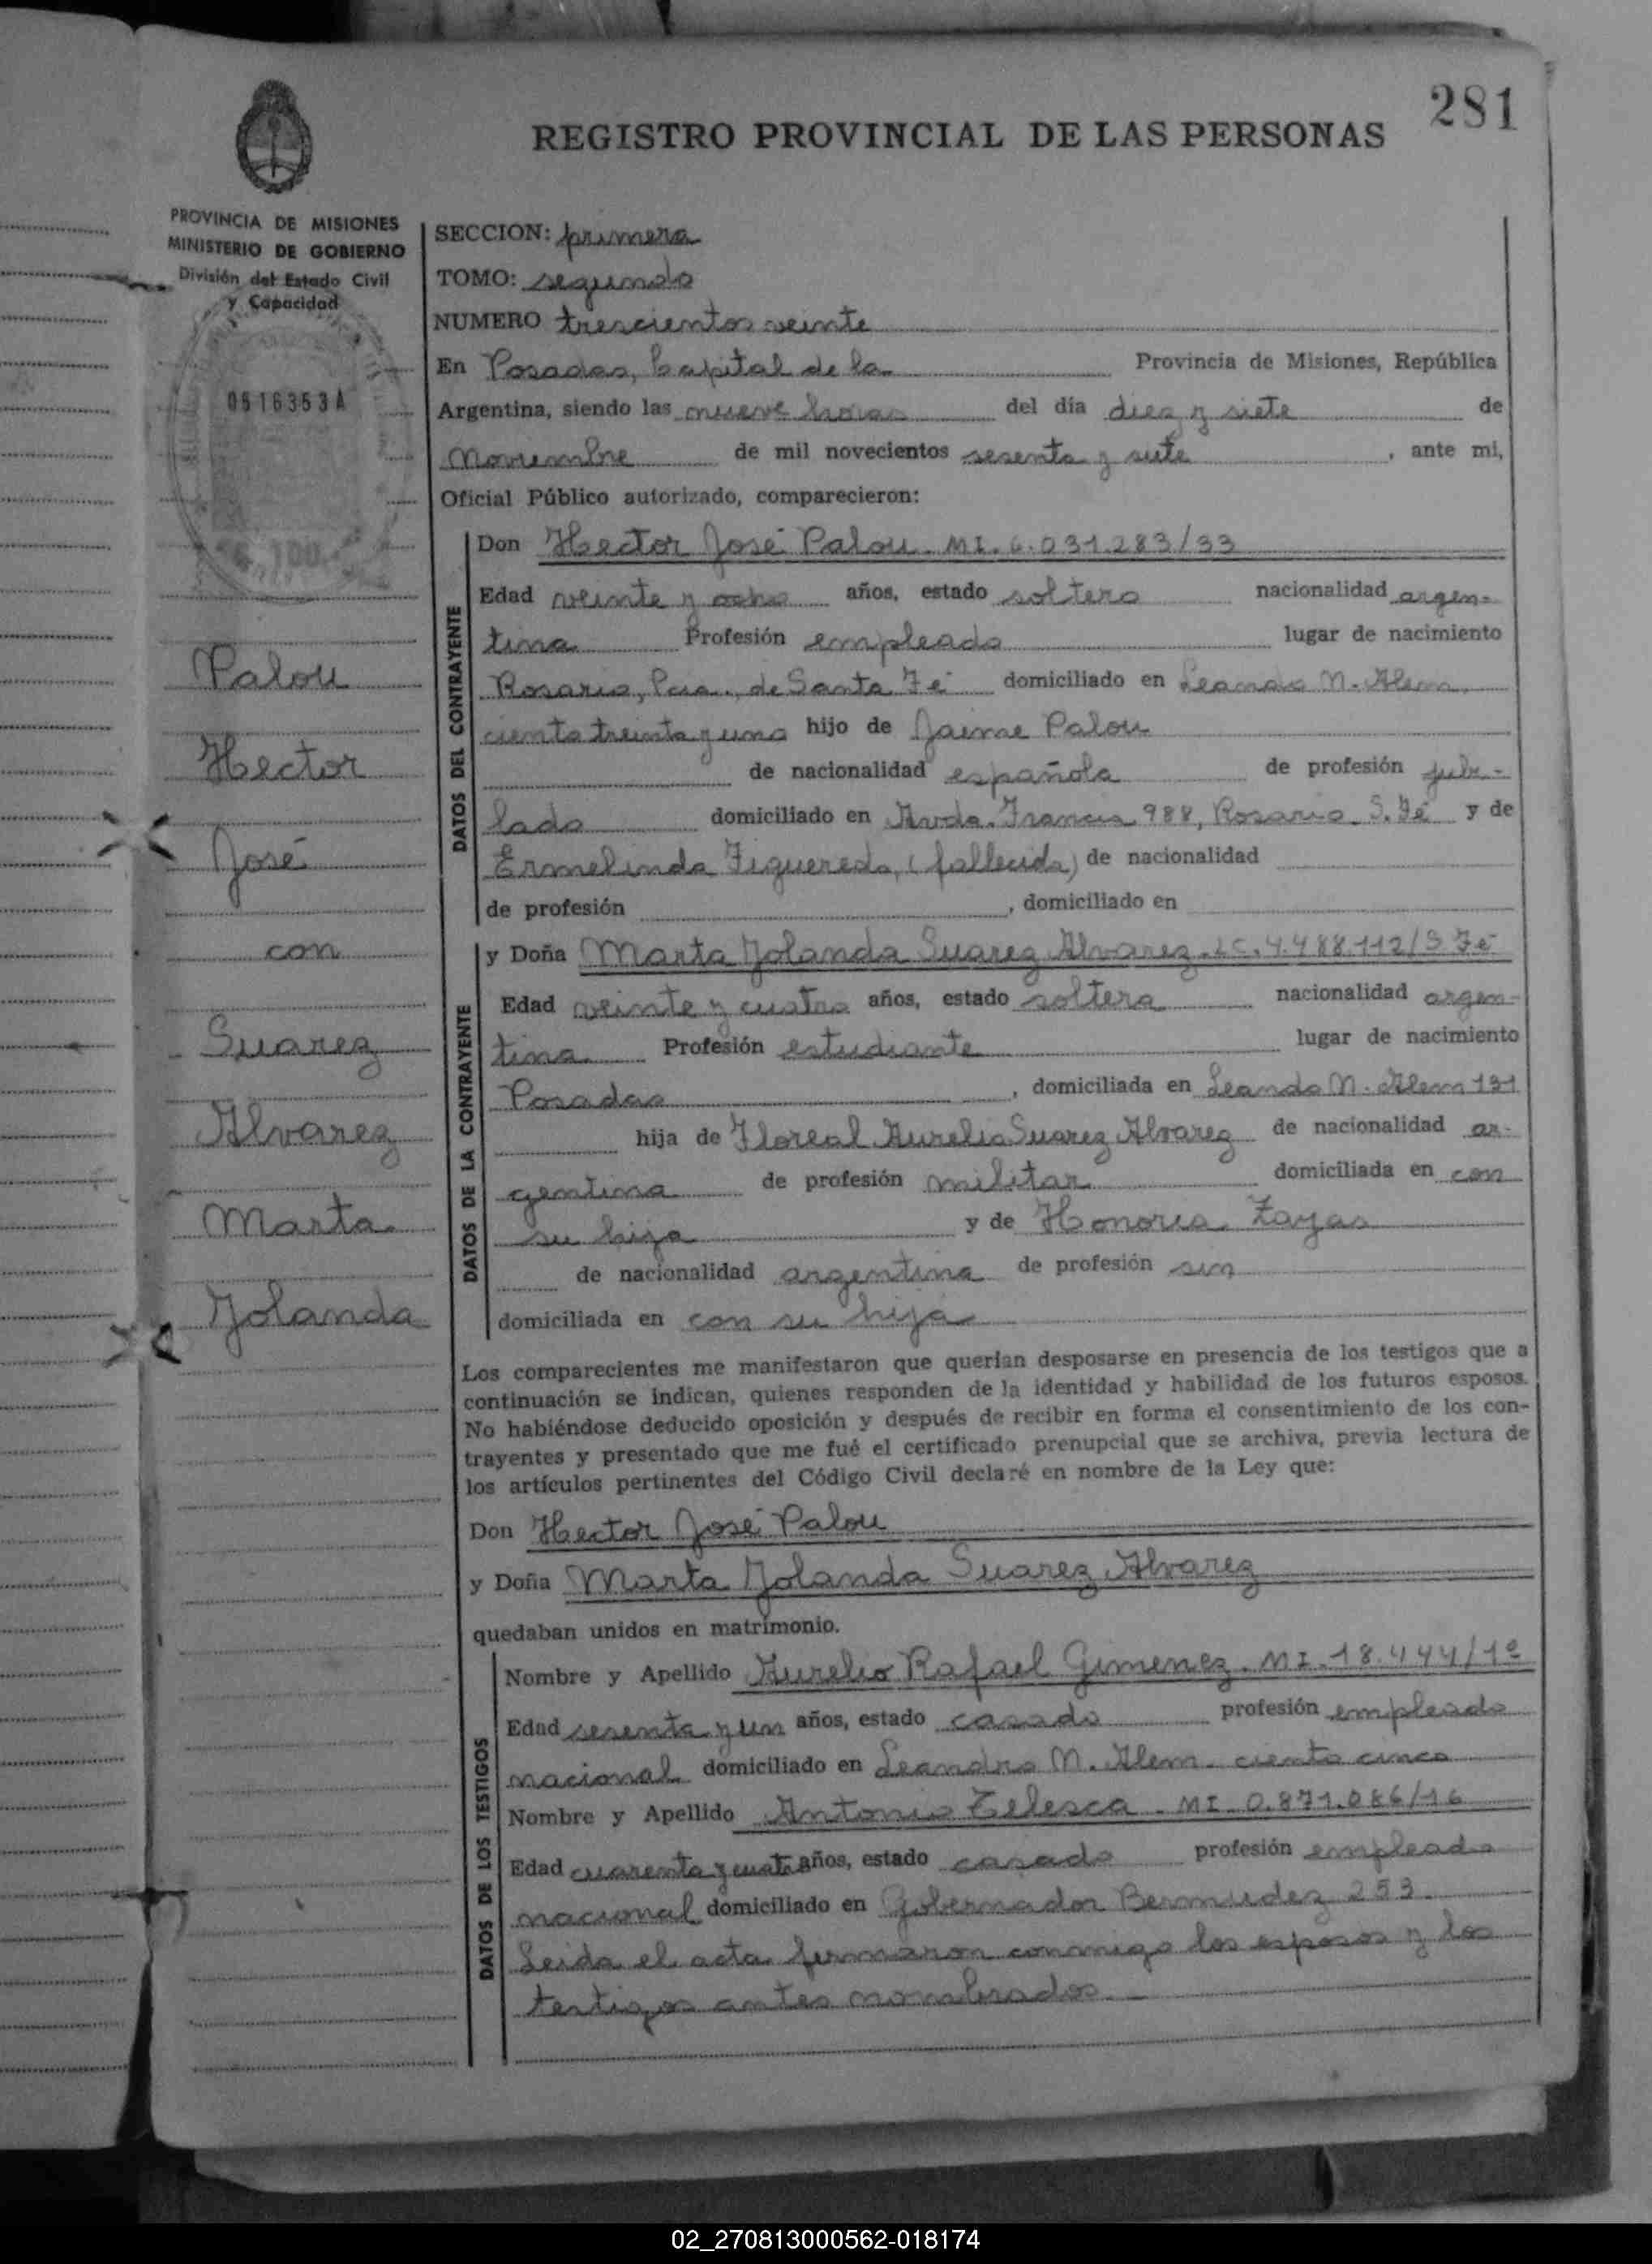 281
REGISTRO PROVINCIAL DE LAS PERSONAS
PROVINCIA DE MISIONES
MINISTERIO DE GOBIERNO
División del Estado Civil
y Capacidad
0516353A
100
Palou
Hector
José
con
Suarez
Alvarez
Marta
Yolanda
SECCION: primera
TOMO: segundo
NUMERO trescientos veinte
En Posadas, Capital de la Provincia de Misiones, República
Argentina, siendo las nueve horas del día diez y siete de
Noviembre de mil novecientos sesenta y siete, ante mi,
Oficial Público autorizado, comparecieron:
DATOS DEL CONTRAYENTE
Don Hector José Palou. MI. 6.031.283/33
Edad veinte y ocho años, estado soltero nacionalidad argen-
tina Profesión empleado lugar de nacimiento
Rosario, Pcia. de Santa Fé domiciliado en Leando N. Alem
ciento treinta y uno hijo de Jaime Palou
de nacionalidad española de profesión jubi-
lado domiciliado en Avda. Francia 988, Rosario S. Fé y de
Ermelinda Figueredo, (fallecida) de nacionalidad
de profesión , domiciliado en
DATOS DE LA CONTRAYENTE
y Doña Marta Yolanda Suarez Alvarez. LC. 4.488.112/S Fé
Edad veinte y cuatro años, estado soltera nacionalidad argen-
tina Profesión estudiante lugar de nacimiento
Posadas , domiciliada en Leando N. Alem 131
hija de Floreal Aurelio Suarez Alvarez de nacionalidad ar-
gentina de profesión militar domiciliada en con
su hija y de Honoria Zayas
de nacionalidad argentina de profesión sin
domiciliada en con su hija
Los comparecientes me manifestaron que querían desposarse en presencia de los testigos que a
continuación se indican, quienes responden de la identidad y habilidad de los futuros esposos.
No habiéndose deducido oposición y después de recibir en forma el consentimiento de los con-
trayentes y presentado que me fué el certificado prenupcial que se archiva, previa lectura de
los artículos pertinentes del Código Civil declaré en nombre de la Ley que:
Don Hector José Palou
y Doña Marta Yolanda Suarez Alvarez
quedaban unidos en matrimonio.
DATOS DE LOS TESTIGOS
Nombre y Apellido Aurelio Rafael Gimenez. MI. 18.444/1º
Edad sesenta y un años, estado casado profesión empleado
nacional domiciliado en Leandro N. Alem ciento cinco
Nombre y Apellido Antonio Telesca. MI. 0.871.086/16
Edad cuarenta y cuatro años, estado casado profesión empleado
nacional domiciliado en Gobernador Bermudez 253.
Leida el acta firmaron conmigo los esposos y los
testigos antes nombrados.
02_270813000562-018174